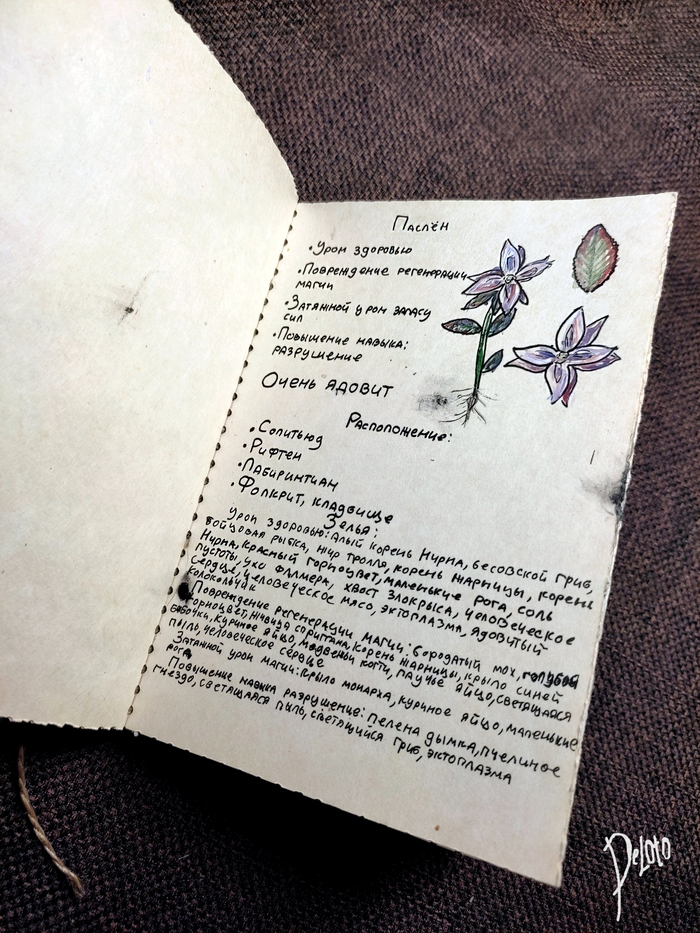 Паслён
•Урон здоровью
•Повреждение регенерации
магии
•Затяжной урон запасу
сил
•Повышение навыка:
разрушение
Очень ядовит
Расположение:
•Солитьюд
•Рифтен
•Лабиринтиан
•Фолкрит, кладвище
Зелья:
Урон здоровью: Алый корень Нирна, бесовской гриб,
Бойцовая рыбка, жир тролля, корень жарницы, корень
Нирна, красный горноцвет, маленькие рога, соль
пустоты, ухи фалмера, хвост злокрыса, человеческое
сердце, человеческое мясо, эктоплазма, ядовитый
колокольчик
Повреждение регенерации магии: бородатый мох, голубой
горноцвет, ичвида спригана, корень жарницы, крыло синей
бабочки, куриное яйцо, медвежьи когти, паучье яйцо, светящаяся
пыль, человеческое сердце
Затяжной урон магии: крыло монарха, куриное яйцо, маленькие
рога
Повышение навыка разрушение: пелена дымка, пчелиное
гнездо, светящаяся пыль, светящийся гриб, эктоплазма
DeLoto